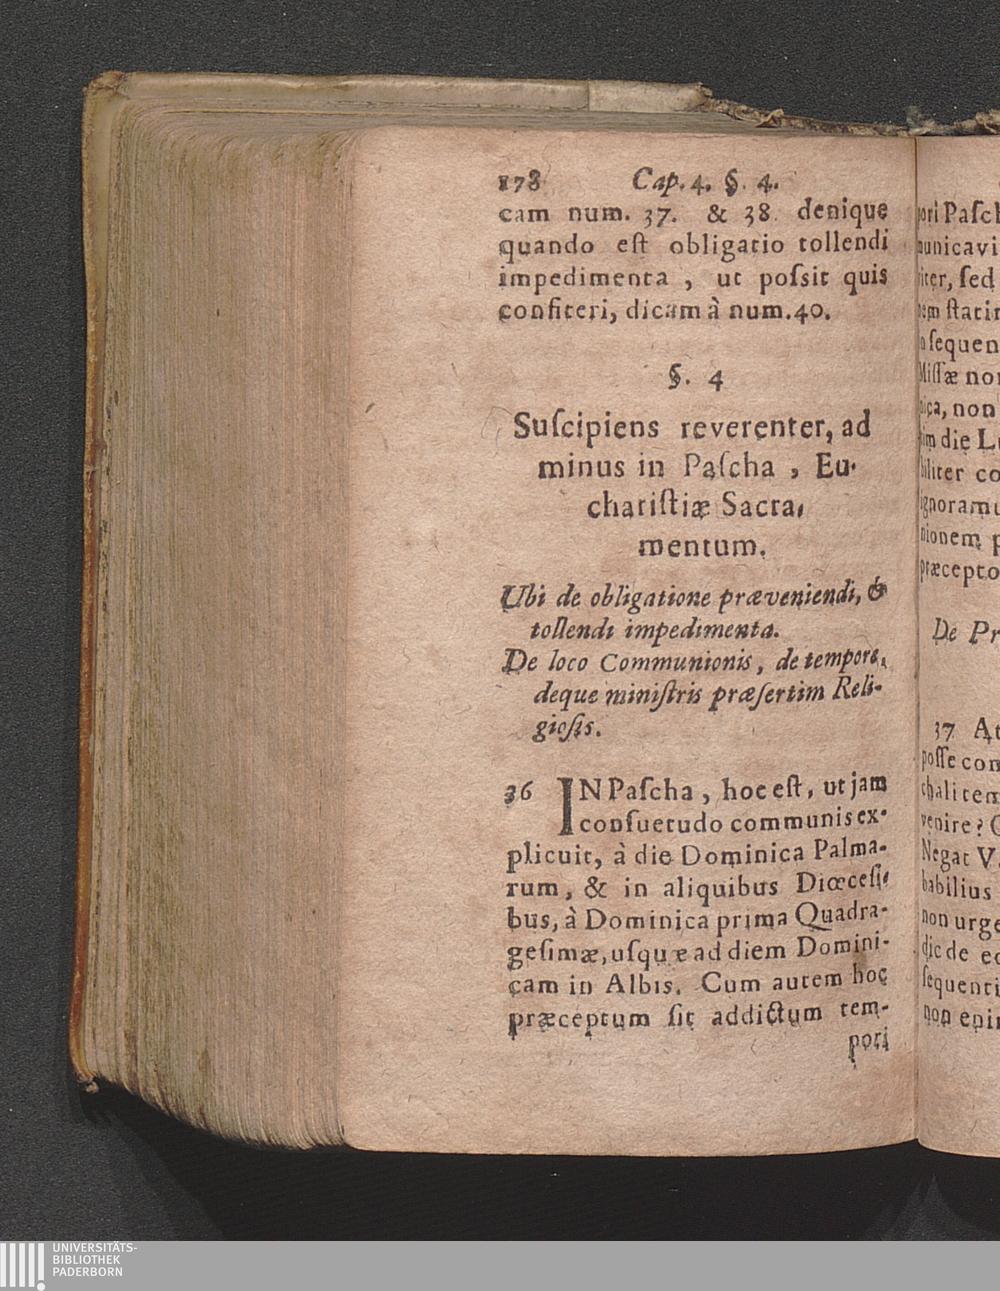 178 Cap. 4. §. 4.
cam num. 37. & 38. denique
quando eſt obligatio tollendi
impedimenta , ut poſsit quis
confiteri, dicam à num.40.
§. 4
Suſcipiens reverenter, ad
minus in Paſcha , Eu-
chariſtiæ Sacra-
mentum.
Ubi de obligatione præveniendi, &
tollendi impedimenta.
De loco Communionis, de tempore,
deque miniſtris præſertim Reli-
gioſis.
36 IN Paſcha , hoc eſt, ut jam
conſuetudo communis ex-
plicuit, à die Dominica Palma-
rum, & in aliquibus Diœceſi-
bus, à Dominica prima Quadra-
geſimæ, uſque ad diem Domini-
cam in Albis. Cum autem hoc
præceptum ſit addictum tem-
pori
ori Paſch
nunicavi
iter, ſed
ſequen
Miſſæ no
ica, non
im die L
biliter co
ignoramu
nionem p
præcepto
De Pr
37 At
poſſe con
chali tem
venire?
Negat V
babilius
non urge
dic de eo
ſequenti
non enim
UNIVERSITÄTS-
BIBLIOTHEK
PADERBORN